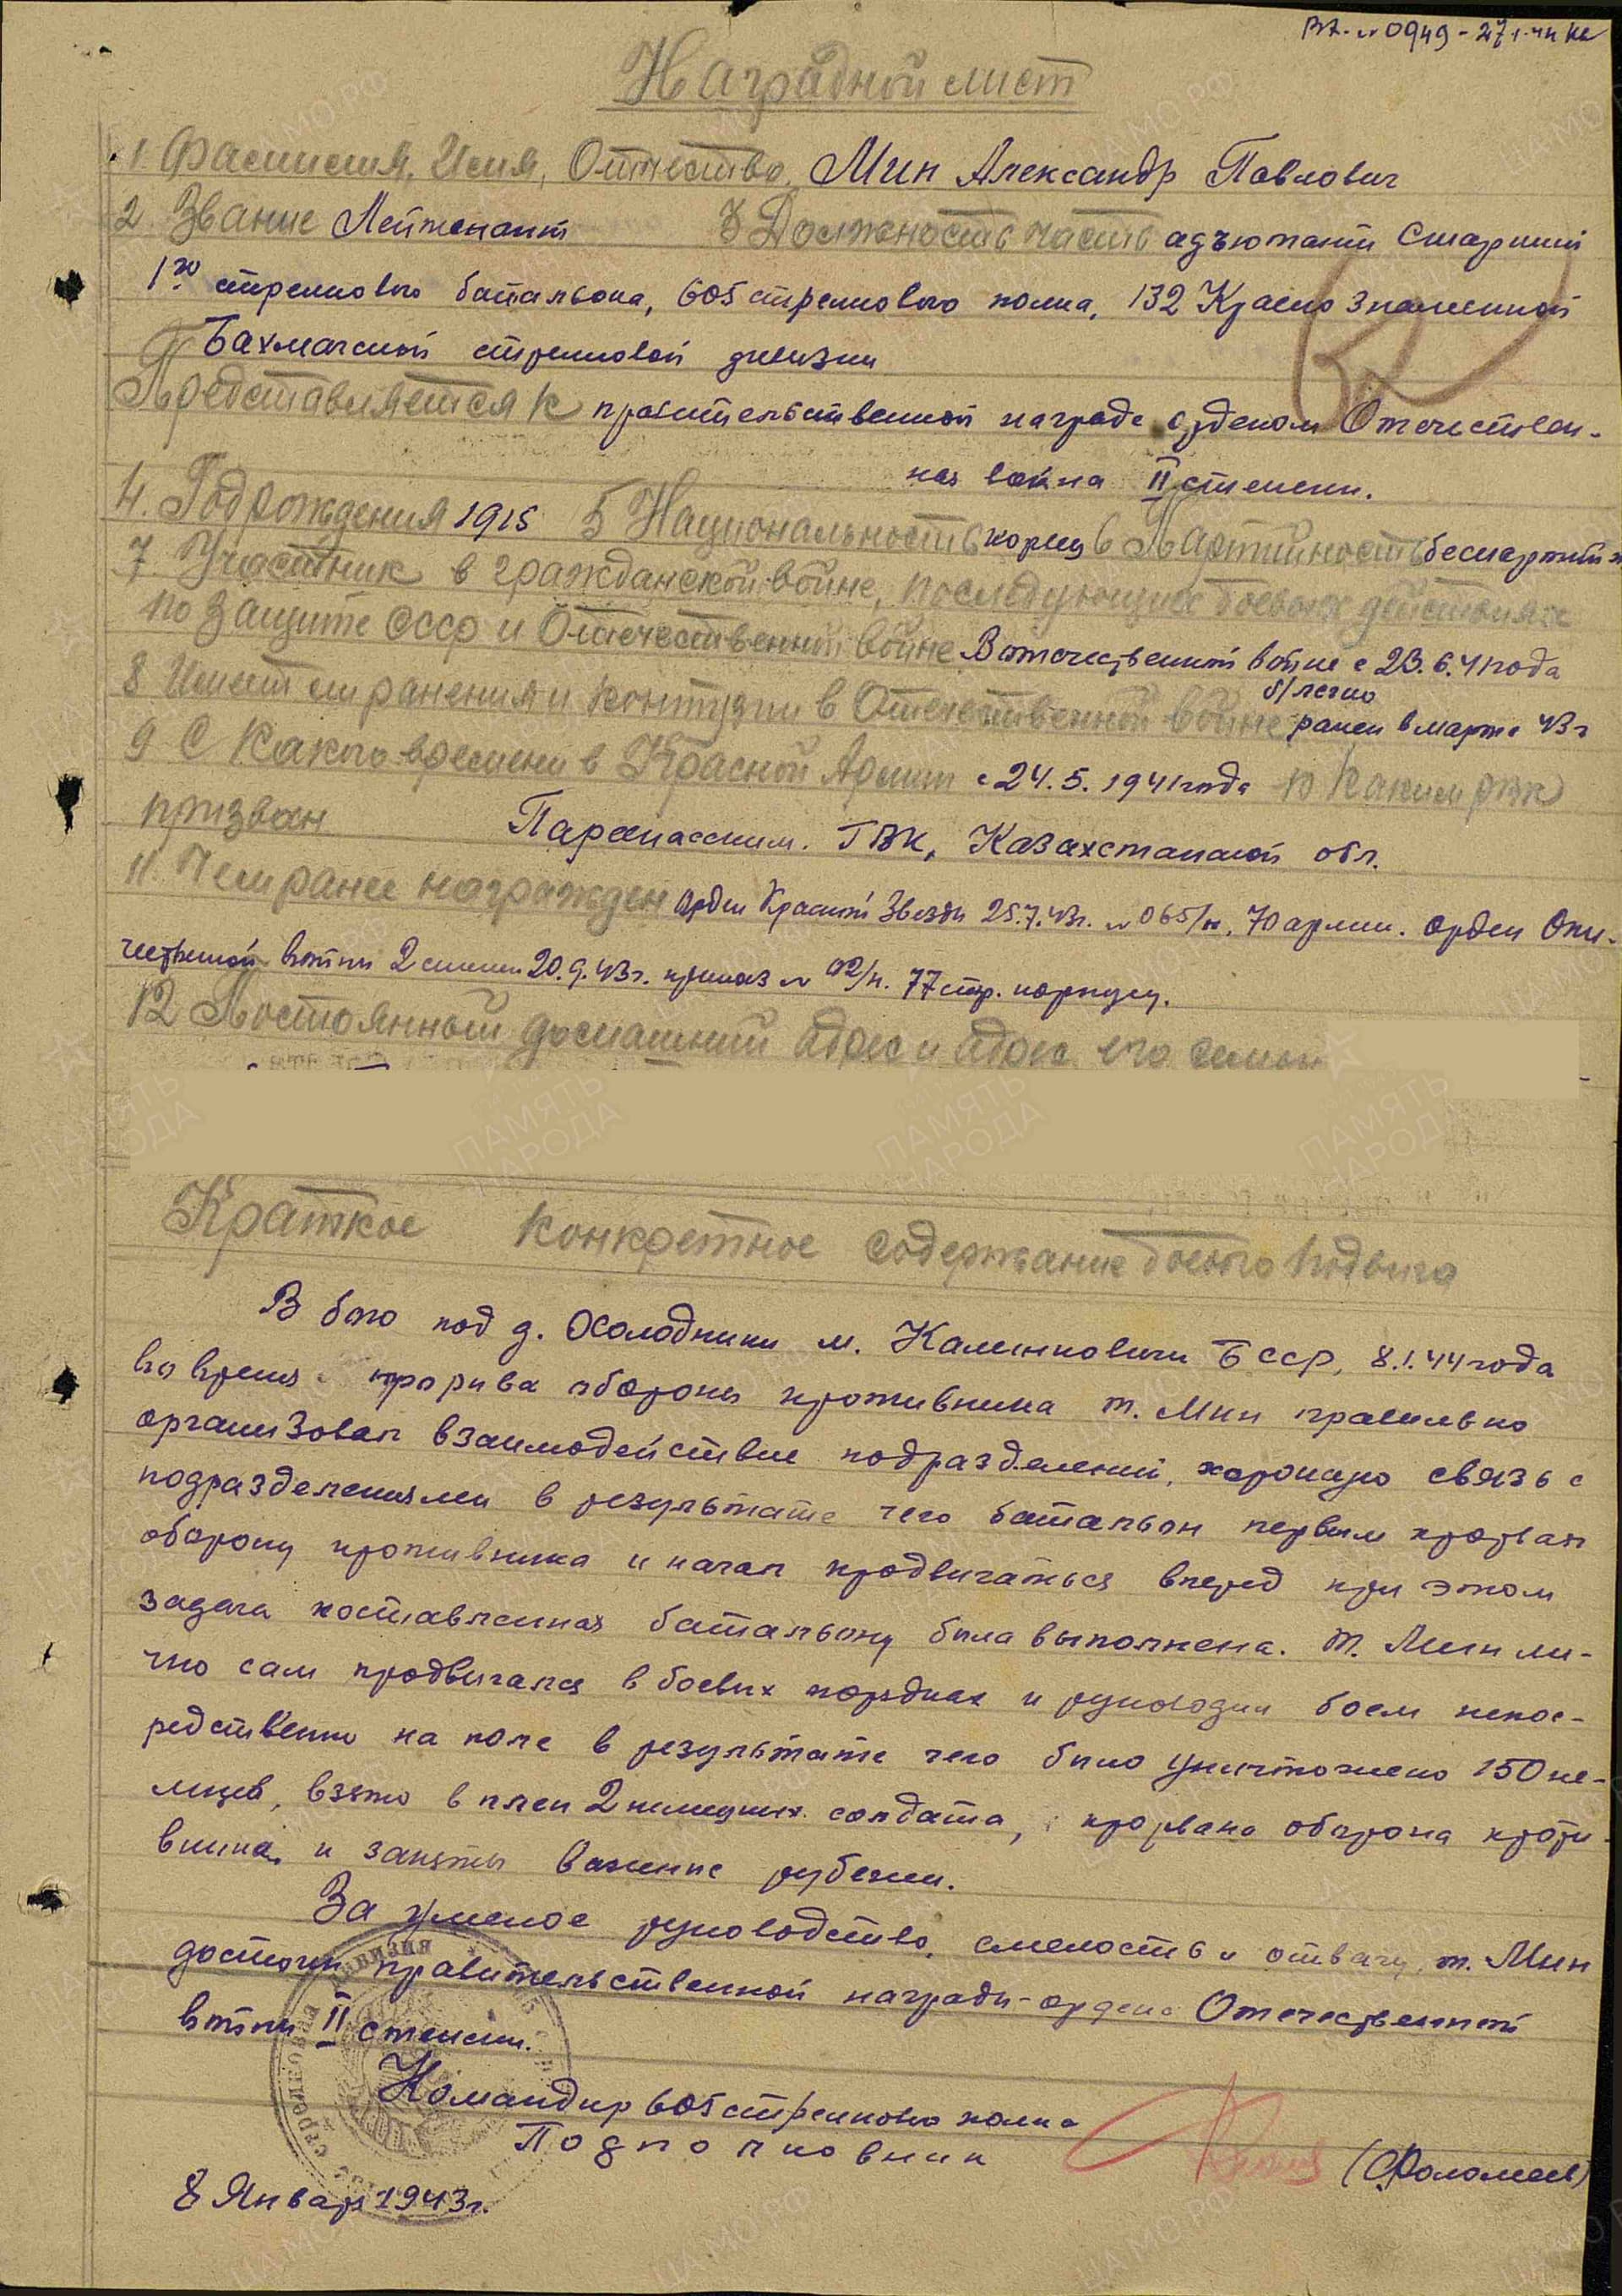 Вх. № 0949 - 27.1.44
Наградной лист
1 Фамилия, Имя, Отчество, Мин Александр Павлович
2. Звание Лейтенант 3 Должность часть адъютант старший
1го стрелкового батальона, 605 стрелкового полка, 132 Краснознаменной
Бахмачской стрелковой дивизии
Представляется к правительственной награде орденом Отечествен-
ная война II степени.
4. Год рождения 1915 5 Национальность кореец 6 Партийность беспартийн
7 Участник в гражданской войне, последующих боевых действиях
по защите СССР и Отечественной войне В отечественной войне с 23.6.41 года
8 Имеет ли ранения и контузии в Отечественной войне б/легко ранен в марте 43 г
9 С какого времени в Красной Армии с 24.5.1941 года 10 Каким рвк
призван ГВК, Казахстанской обл.
11 Чем ранее награжден орден Красной Звезды 25.7.43г. № 065/н, 70 армии. Орден Оте-
чественной войны 2 степени 20.9.43г. приказ № 02/н. 77 стр. корпусу.
12 Постоянный домашний адрес и адрес его семьи
Краткое конкретное содержание боевого подвига
В бою под д. Холодники м. Калинковичи БССР, 8.1.44 года
во время прорыва обороны противника т. Мин правильно
организовал взаимодействие подразделений, хорошую связь с
подразделениями в результате чего батальон первым прорвал
оборону противника и начал продвигаться вперед при этом
задача поставленная батальону была выполнена. Т. Мин ли-
чно сам продвигался в боевых порядках и руководил боем непос-
редственно на поле в результате чего было уничтожено 150 не-
мцев, взято в плен 2 немецких солдата, прорвана оборона проти-
вника и заняты важные рубежи.
За умелое руководство, смелость и отвагу, т. Мин
достоин правительственной награды - ордена Отечественной
войны II степени.
Командир 605 стрелкового полка
Подполковник (Фоломеев)
8 Января 1943г.
СТРЕЛКОВАЯ ДИВИЗИЯ
ПАМЯТЬ НАРОДА
ЦА МО РФ